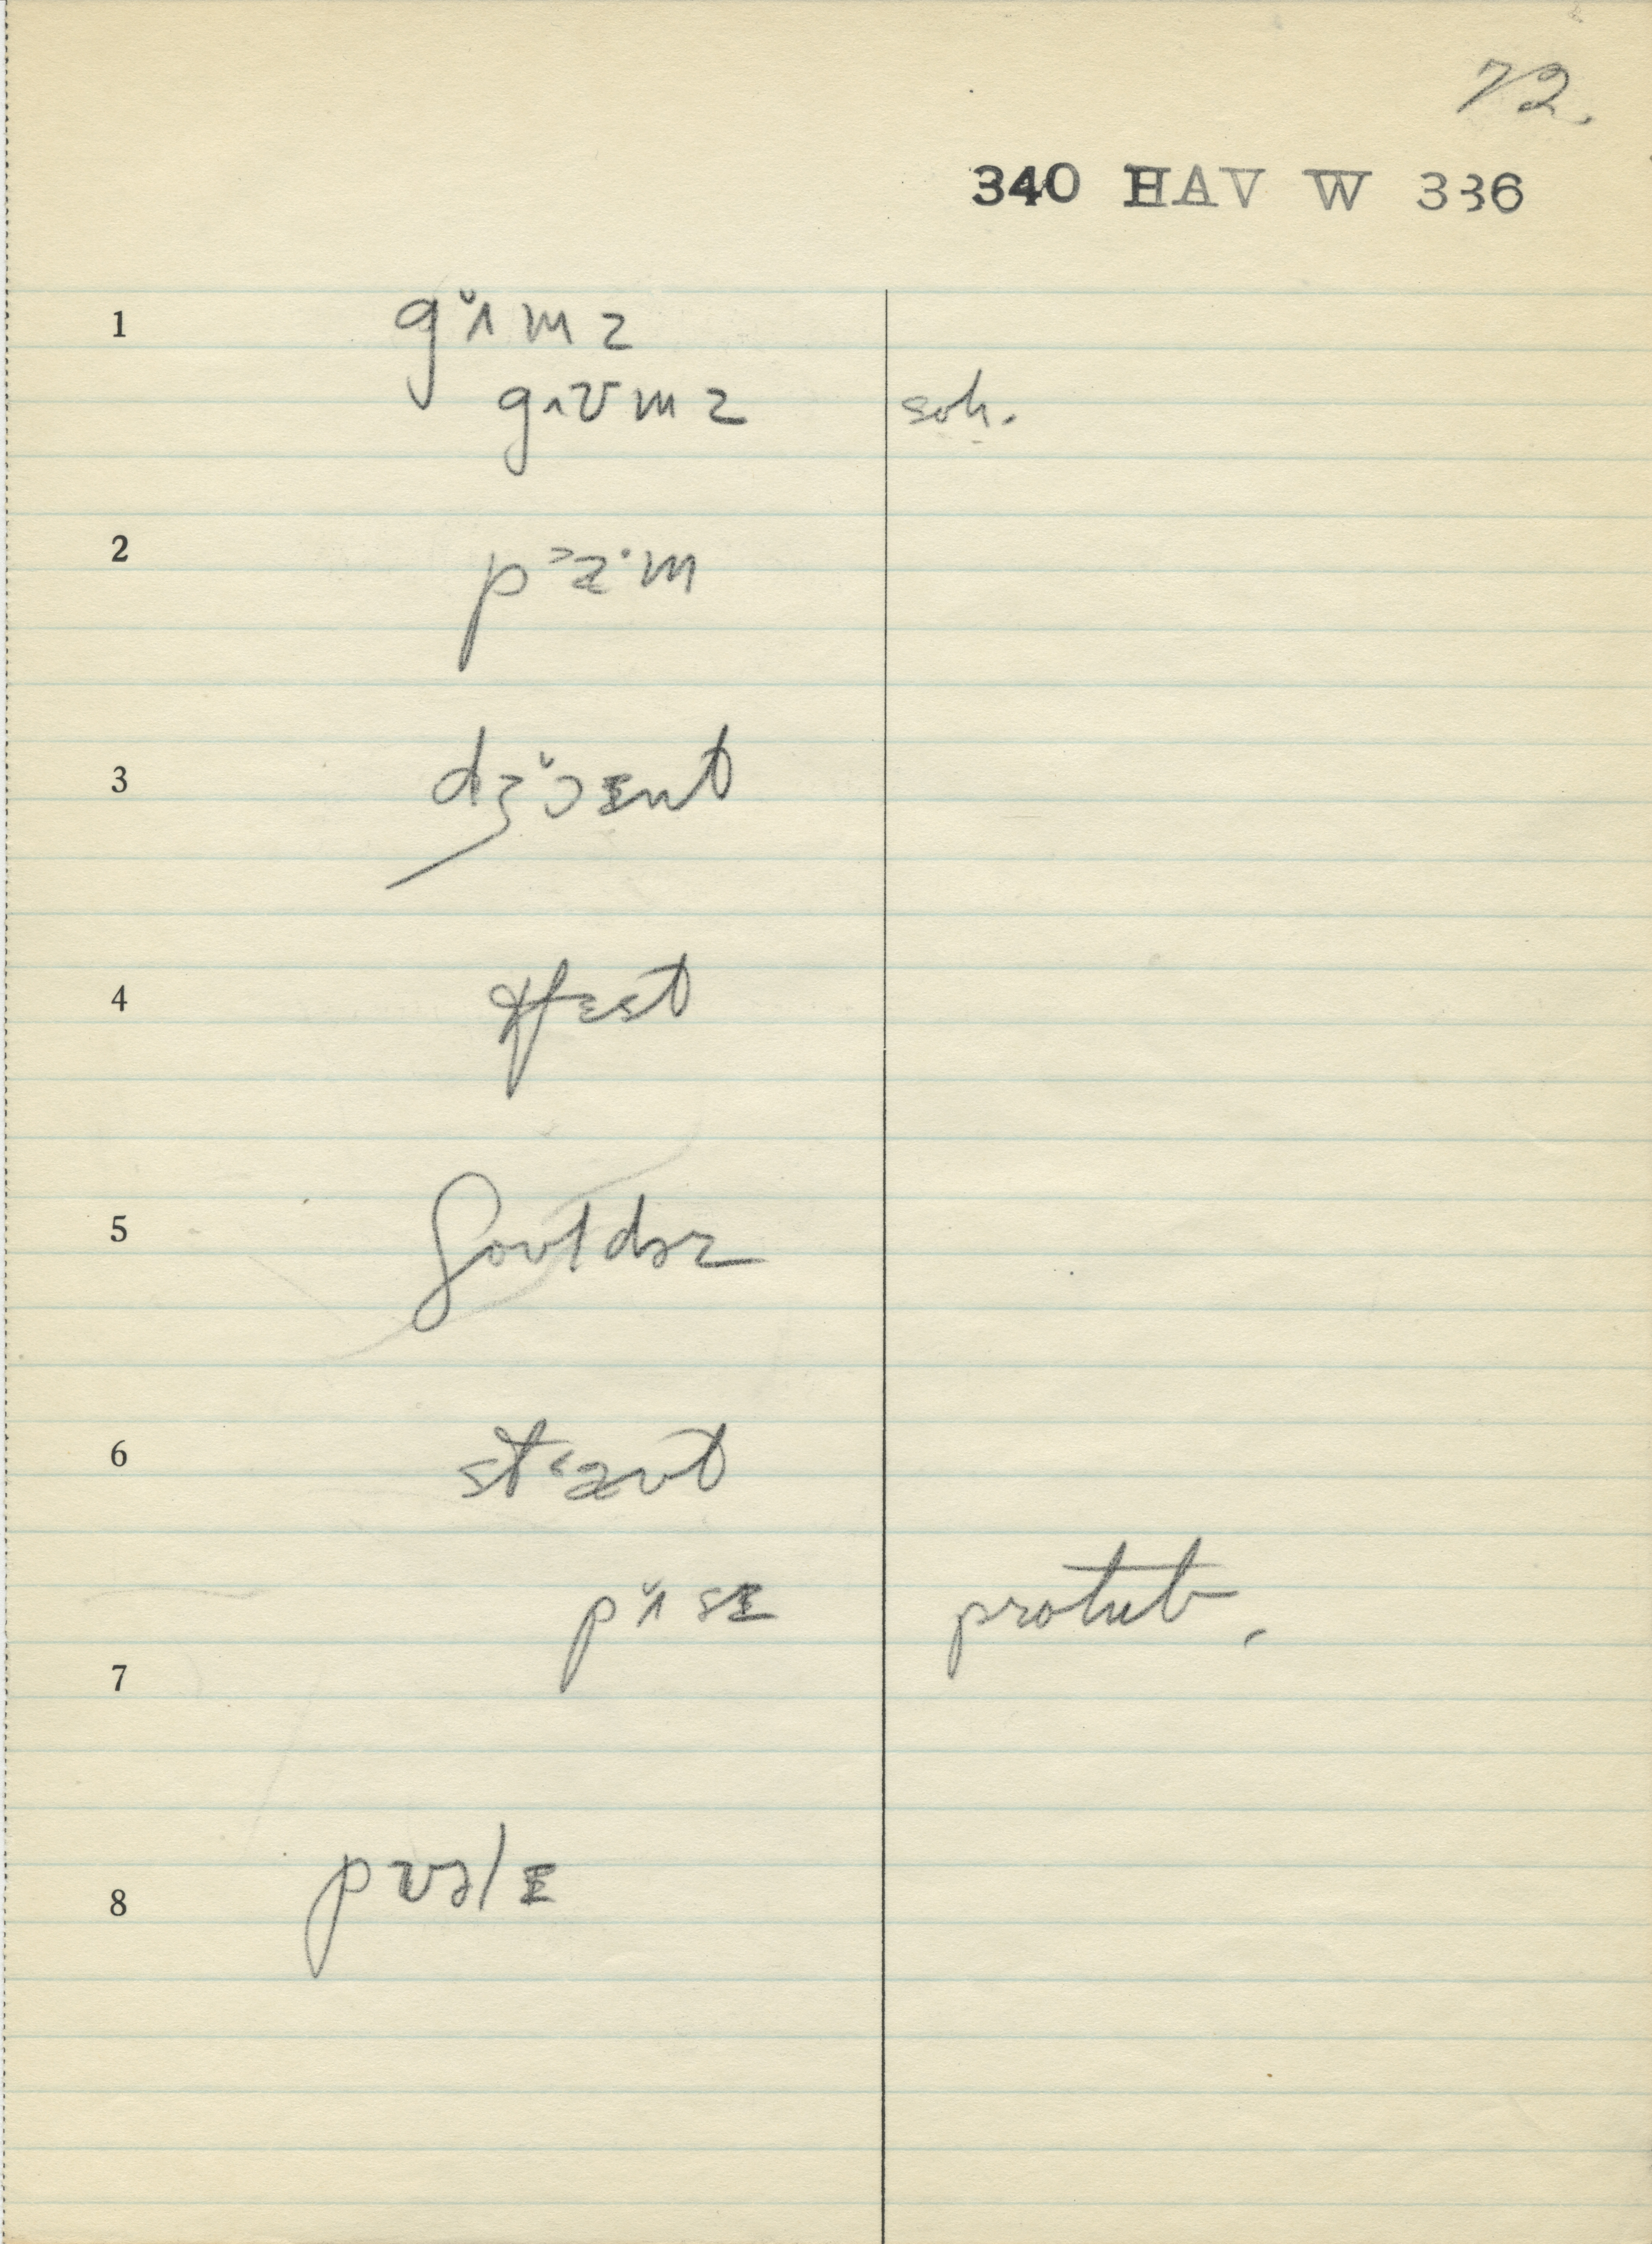 72.
340 HAV W 336
1 gʌ̆mz
gʌʊmz soh.
2 pᵓɑˑm
3 dʒɔ̆ɪnt
4 tʃɛst
5 ʃoʊldəz
6 stᵋaʊt
pʌ̆sɪ protub.
7
8 pʊəlɪ